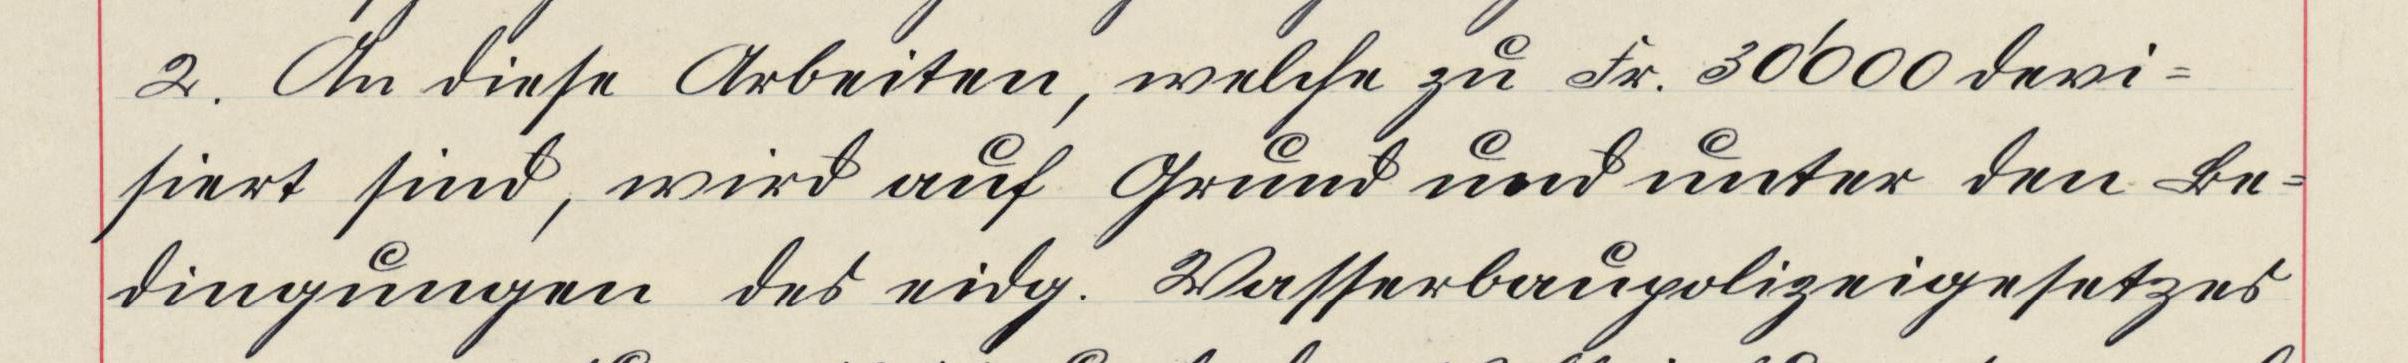 2. An diese Arbeiten, welche zu Fr. 30'000 devi=
siert sind, wird auf Grund und unter den Be=
dingungen des eidg. Wasserbaupolizeigesetzes